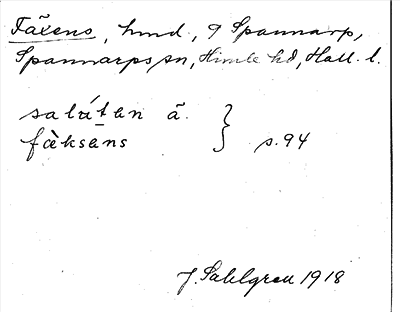 Fäxens, hmd, 9 Spannarp,
Spannarps sn, Himle hd, Hall. l.
salútan ã.
fàksens } s. 94
J. Sahlgren 1918